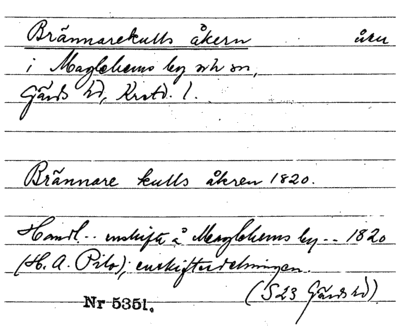 Brännarekulls åkern åker
i Maglehems by och sn,
Gärds hd, Krstd. l.
Brännare kulls åkren 1820.
Handl... enskifte å Maglehems by... 1820
(H. A. Pilo); enskiftesdelningen.
(S23 Gärds hd)
Nr 5351.